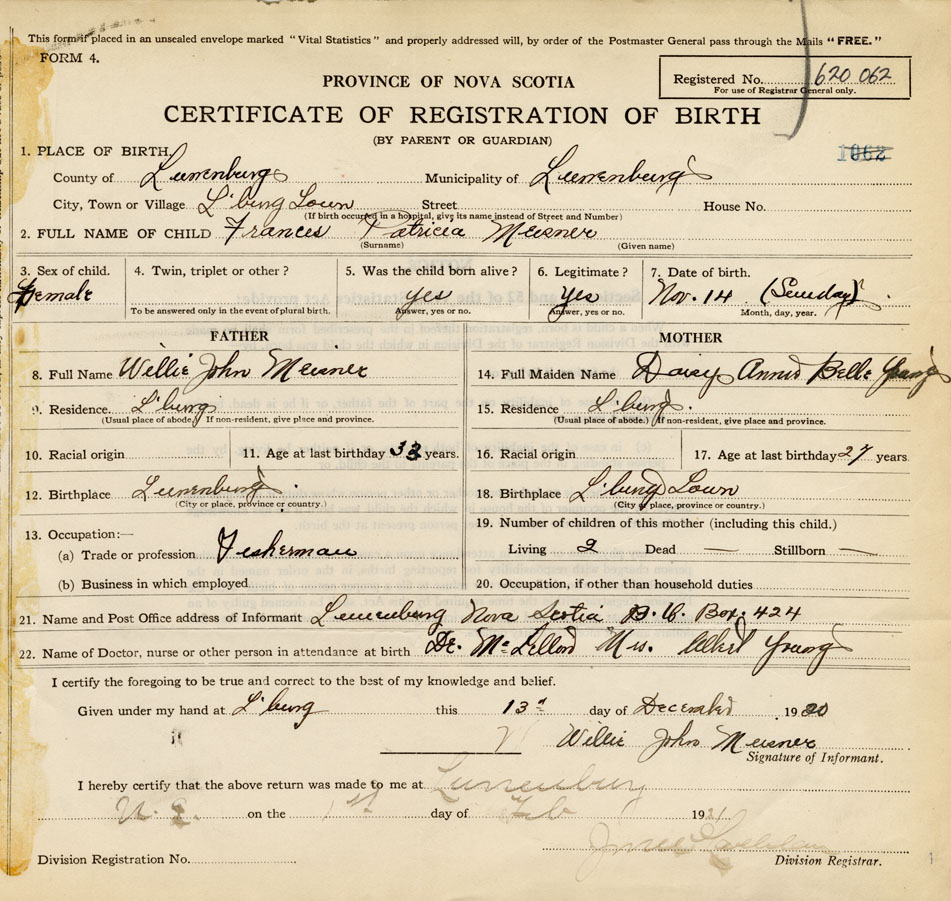 This form if placed in an unsealed envelope marked "Vital Statistics" and properly addressed will, by order of the Postmaster General pass through the Mails "FREE."
FORM 4.
Registered No. 620 062
PROVINCE OF NOVA SCOTIA
For use of Registrar General only.
CERTIFICATE OF REGISTRATION OF BIRTH
(BY PARENT OR GUARDIAN)
1062
1. PLACE OF BIRTH,
County of Lunenburg Municipality of Lunenburg
City, Town or Village L'burg Town Street House No.
(If birth occurred in a hospital, give its name instead of Street and Number)
2. FULL NAME OF CHILD Frances Patricia Meisner
(Surname) (Given name)
3. Sex of child. 4. Twin, triplet or other? 5. Was the child born alive? 6. Legitimate? 7. Date of birth.
Female yes Yes Nov. 14 (Sunday)
To be answered only in the event of plural birth. Answer, yes or no. Answer, yes or no. Month, day, year.
FATHER MOTHER
8. Full Name Willie John Meisner 14. Full Maiden Name Daisy Annie Belle Young
9. Residence. L'burg 15. Residence L'burg.
(Usual place of abode.) If non-resident, give place and province. (Usual place of abode.) If non-resident, give place and province.
10. Racial origin 11. Age at last birthday 33 years. 16. Racial origin 17. Age at last birthday 27 years.
12. Birthplace Lunenburg 18. Birthplace L'burg Town
(City or place, province or country.) (City or place, province or country.)
13. Occupation:— 19. Number of children of this mother (including this child.)
(a) Trade or profession Fisherman Living 2 Dead — Stillborn —
(b) Business in which employed 20. Occupation, if other than household duties
21. Name and Post Office address of Informant Lunenburg Nova Scotia Box. 424
22. Name of Doctor, nurse or other person in attendance at birth Dr. Mrs. Albert Young
I certify the foregoing to be true and correct to the best of my knowledge and belief.
Given under my hand at L'burg this 13th day of December 1920
Willie John Meisner
Signature of Informant.
I hereby certify that the above return was made to me at Lunenburg
N. S. on the 1st day of Feb 1921
Division Registration No. Division Registrar.